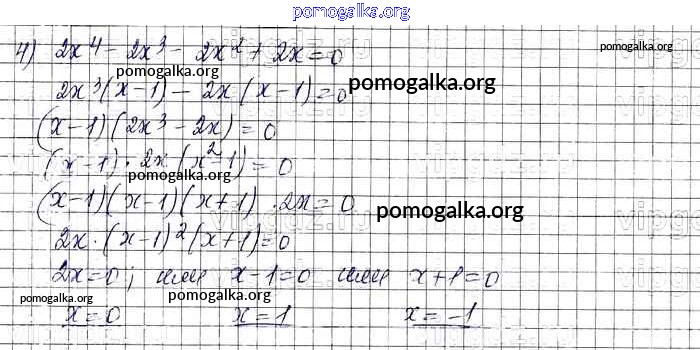 pomogalka.org
4) 2x⁴ - 2x³ - 2x² + 2x = 0
pomogalka.org
pomogalka.org
2x³(x-1) - 2x(x-1) = 0
pomogalka.org
(x-1)(2x³ - 2x) = 0
(x-1)·2x(x²-1) = 0
pomogalka.org
(x-1)(x-1)(x+1)·2x = 0
pomogalka.org
2x·(x-1)²(x+1) = 0
2x = 0; или x-1 = 0 или x+1 = 0
pomogalka.org
pomogalka.org
pomogalka.org
x = 0 x = 1 x = -1